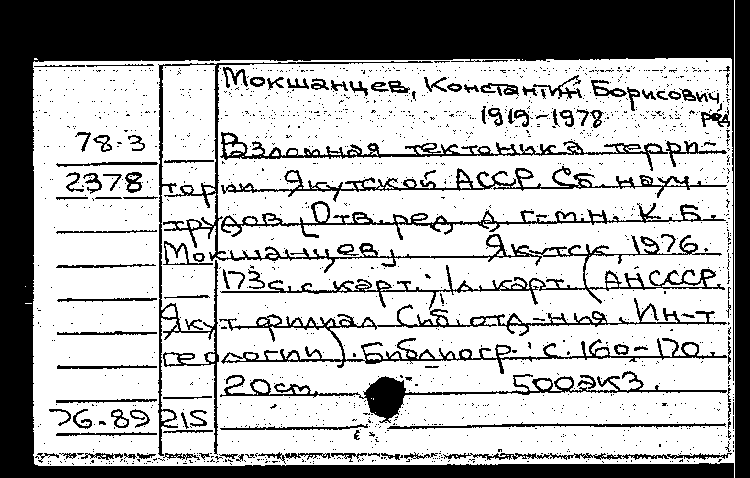 Мокшанцев, Константин Борисович,
1919-1978 ред
78-3 Разломная тектоника терри-
2378 тории Якутской АССР. Сб. науч.
трудов [Отв. ред. д. г.-м. н. К. Б.
Мокшанцев]. Якутск, 1976.
173 с. с карт.; 1 л. карт. (АН СССР.
Якут. филиал Сиб. отд-ния. Ин-т
геологии). Библиогр.: с. 160-170.
20 см. 500 экз.
76-89215